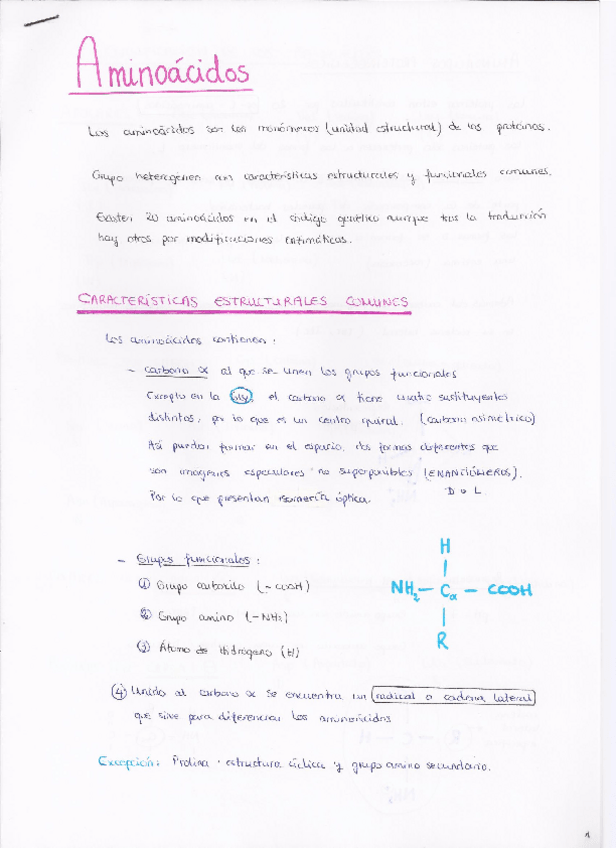 Aminoácidos
Los aminoácidos son los monómeros (unidad estructural) de las proteínas.
Grupo heterogéneo con características estructurales y funcionales comunes.
Existen 20 aminoácidos en el código genético aunque tras la traducción
hay otros por modificaciones enzimáticas.
CARACTERÍSTICAS ESTRUCTURALES COMUNES
Los aminoácidos contienen:
- carbono α al que se unen los grupos funcionales
Excepto en la Gly el carbono α tiene cuatro sustituyentes
distintos, por lo que es un centro quiral. (carbono asimétrico)
Así pueden formar en el espacio, dos formas diferentes que
son imágenes especulares no superponibles (ENANTIÓMEROS).
D o L
Por lo que presentan isomería óptica.
- Grupos funcionales:
① Grupo carboxilo (-COOH)
② Grupo amino (-NH2)
③ Átomo de Hidrógeno (H)
H
NH2 - Cα - COOH
R
④ Unido al carbono α se encuentra un radical o cadena lateral
que sirve para diferenciar los aminoácidos
Excepción: Prolina · estructura cíclica y grupo amino secundario.
1